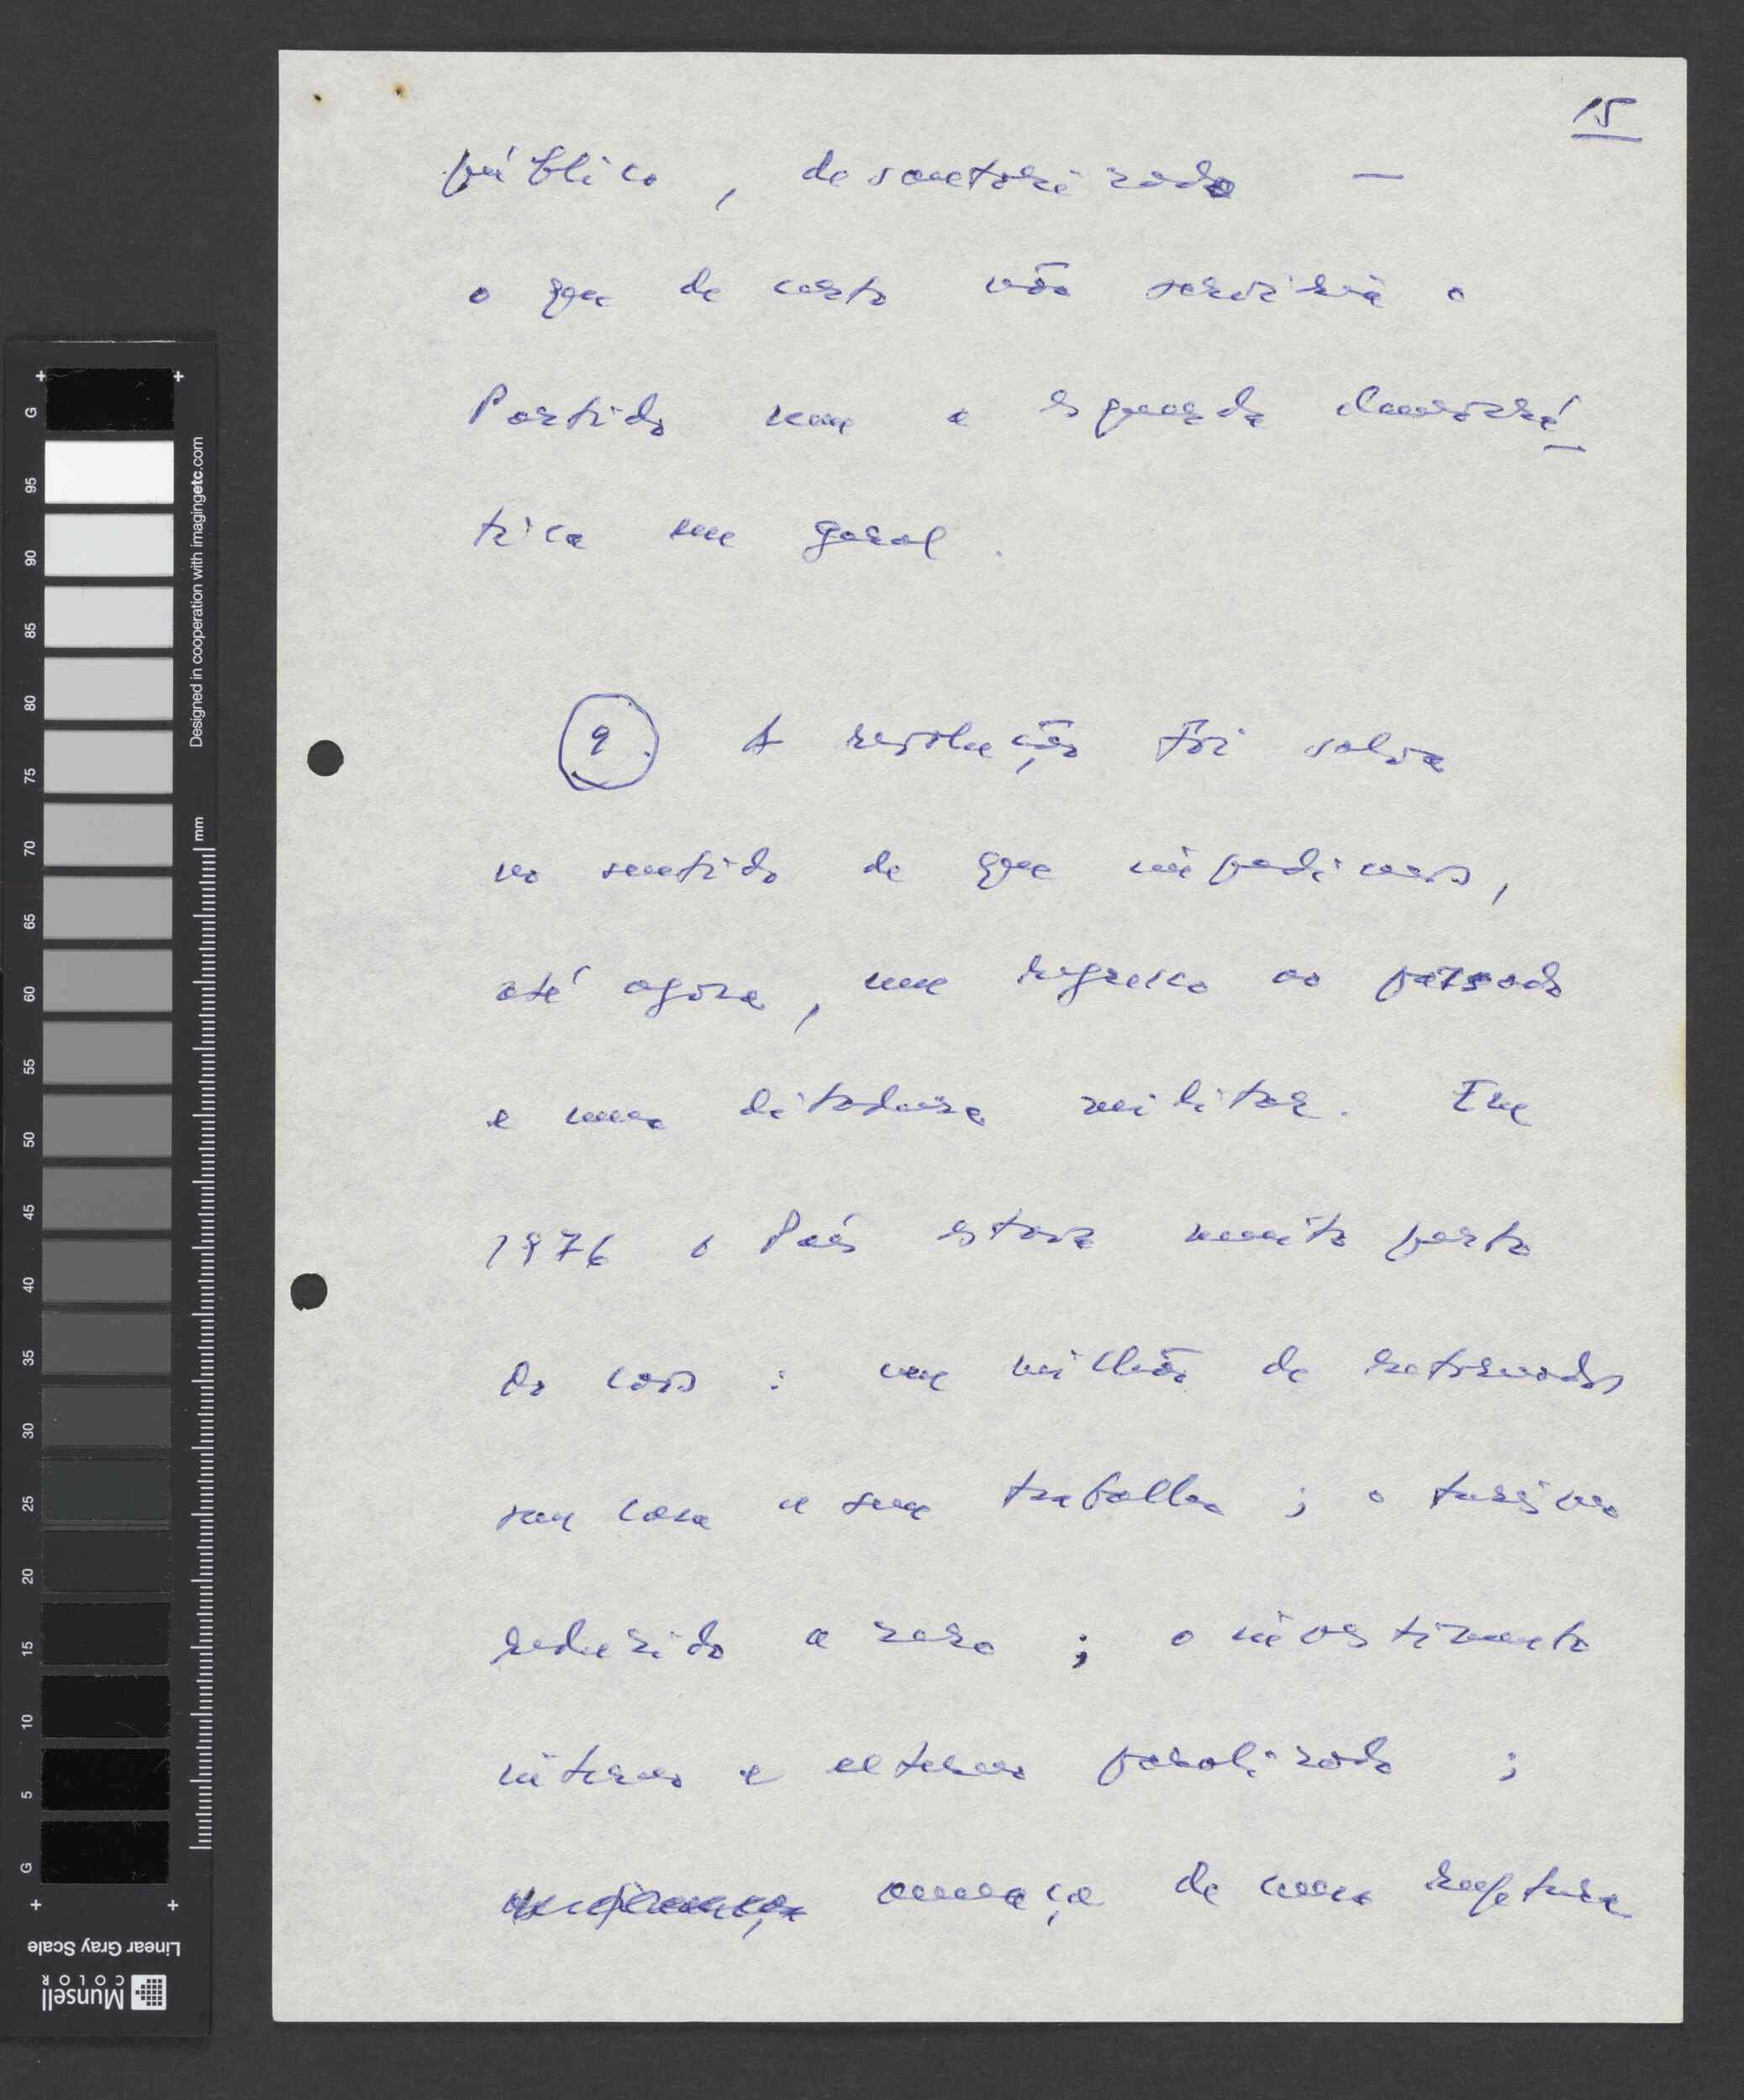 15
público, desautorizado —
o que de certo não serviria o
Partido nem a esquerda democrá-
tica em geral.
9. A revolução foi salva
no sentido de que impedimos,
até agora, um regresso ao passado
e uma ditadura militar. Em
1976 o País estava muito perto
do caos: um milhão de retornados
sem casa e sem trabalho; o turismo
reduzido a zero; o investimento
interno e externo paralizado;
ameaça de uma ruptura
G 95 90 85 80 75 70 65 60 55 50 45 40 35 30 25 20 15 10 5 G
Designed in cooperation with imagingetc.com
mm
Linear Gray Scale
Munsell
COLOR